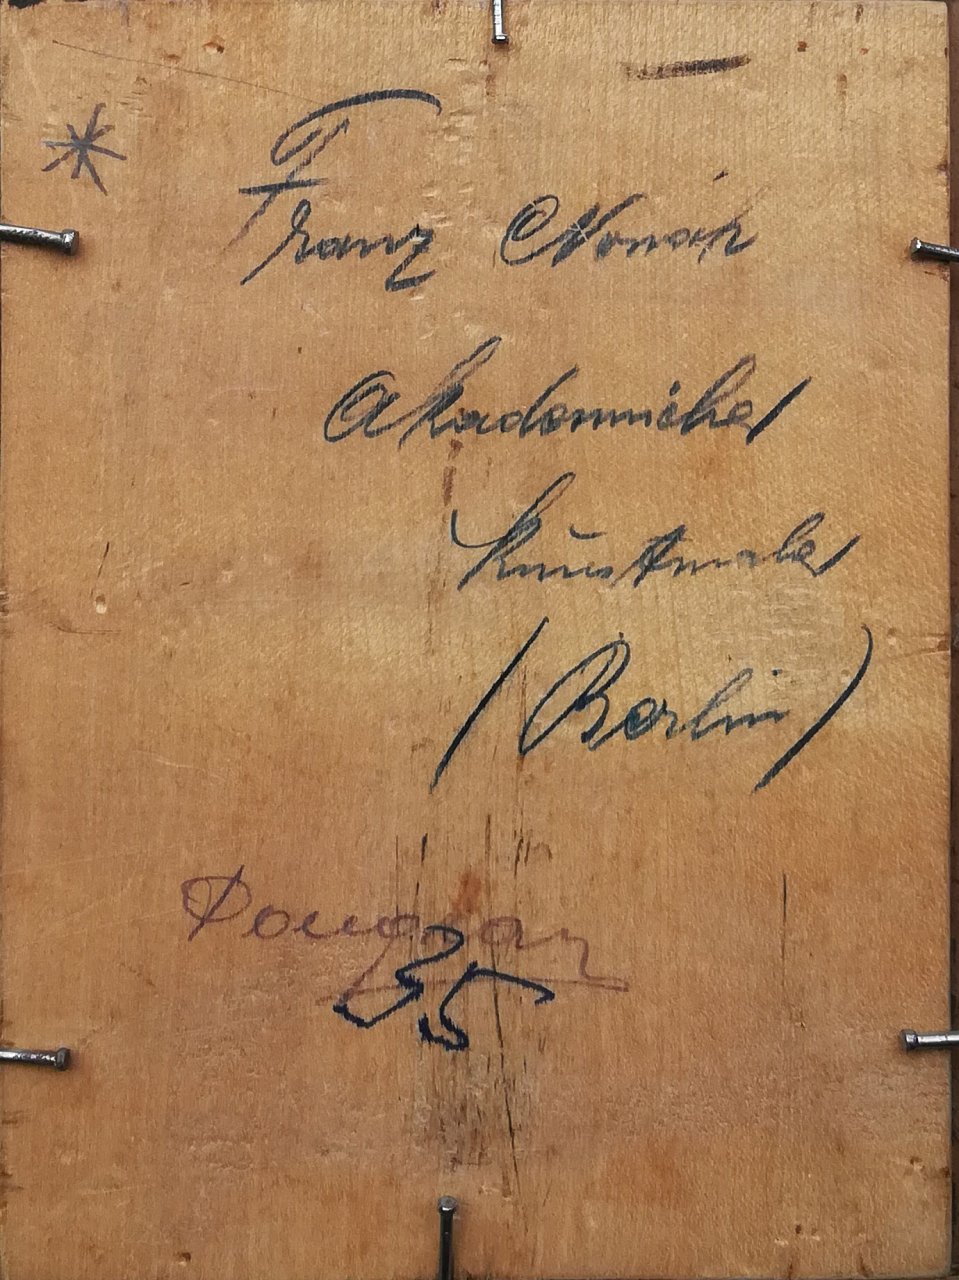 Franz Novak
Akademischer
Kunstmaler
(Berlin)
35